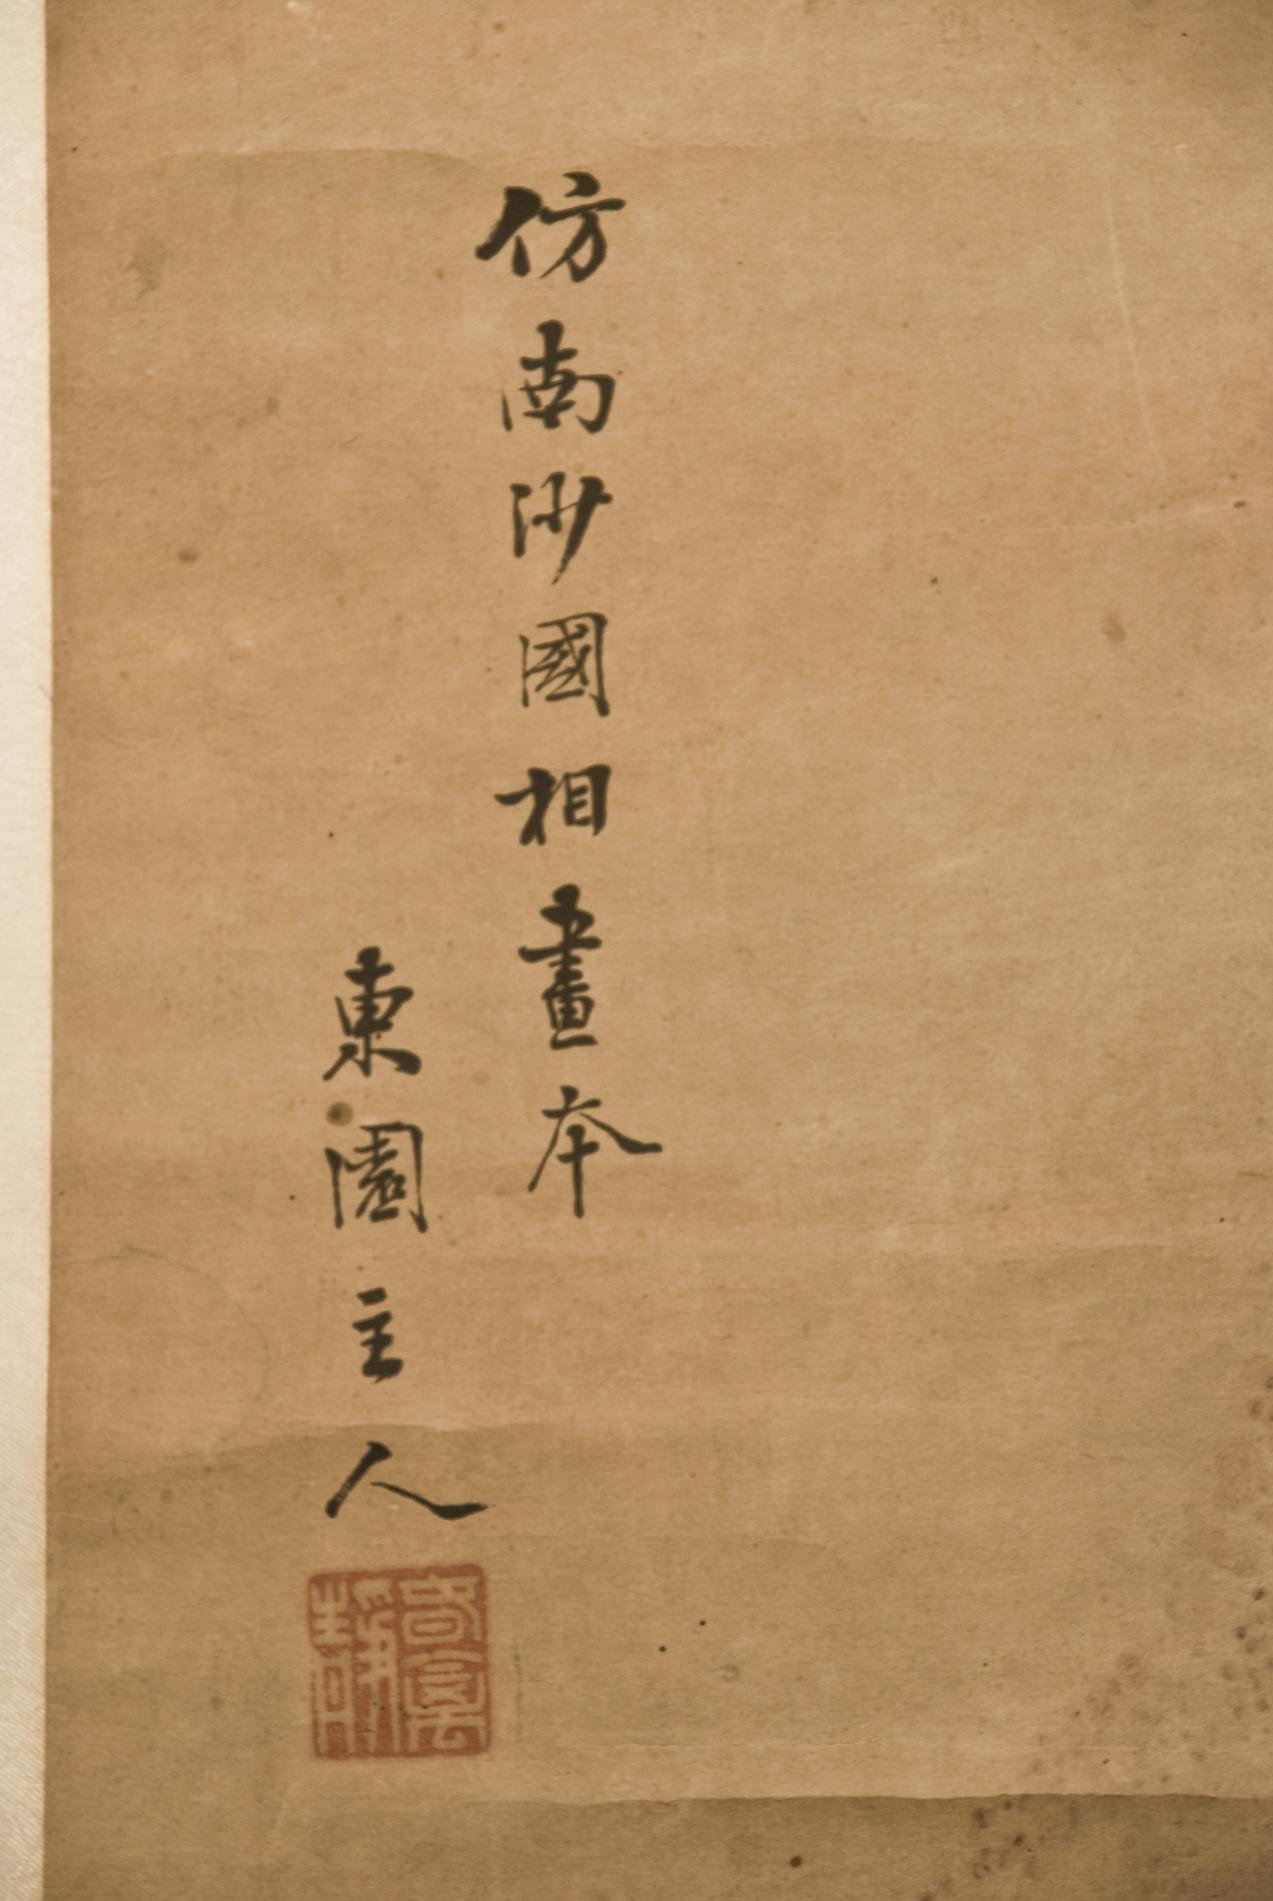 仿南沙國相畫本
東園主人